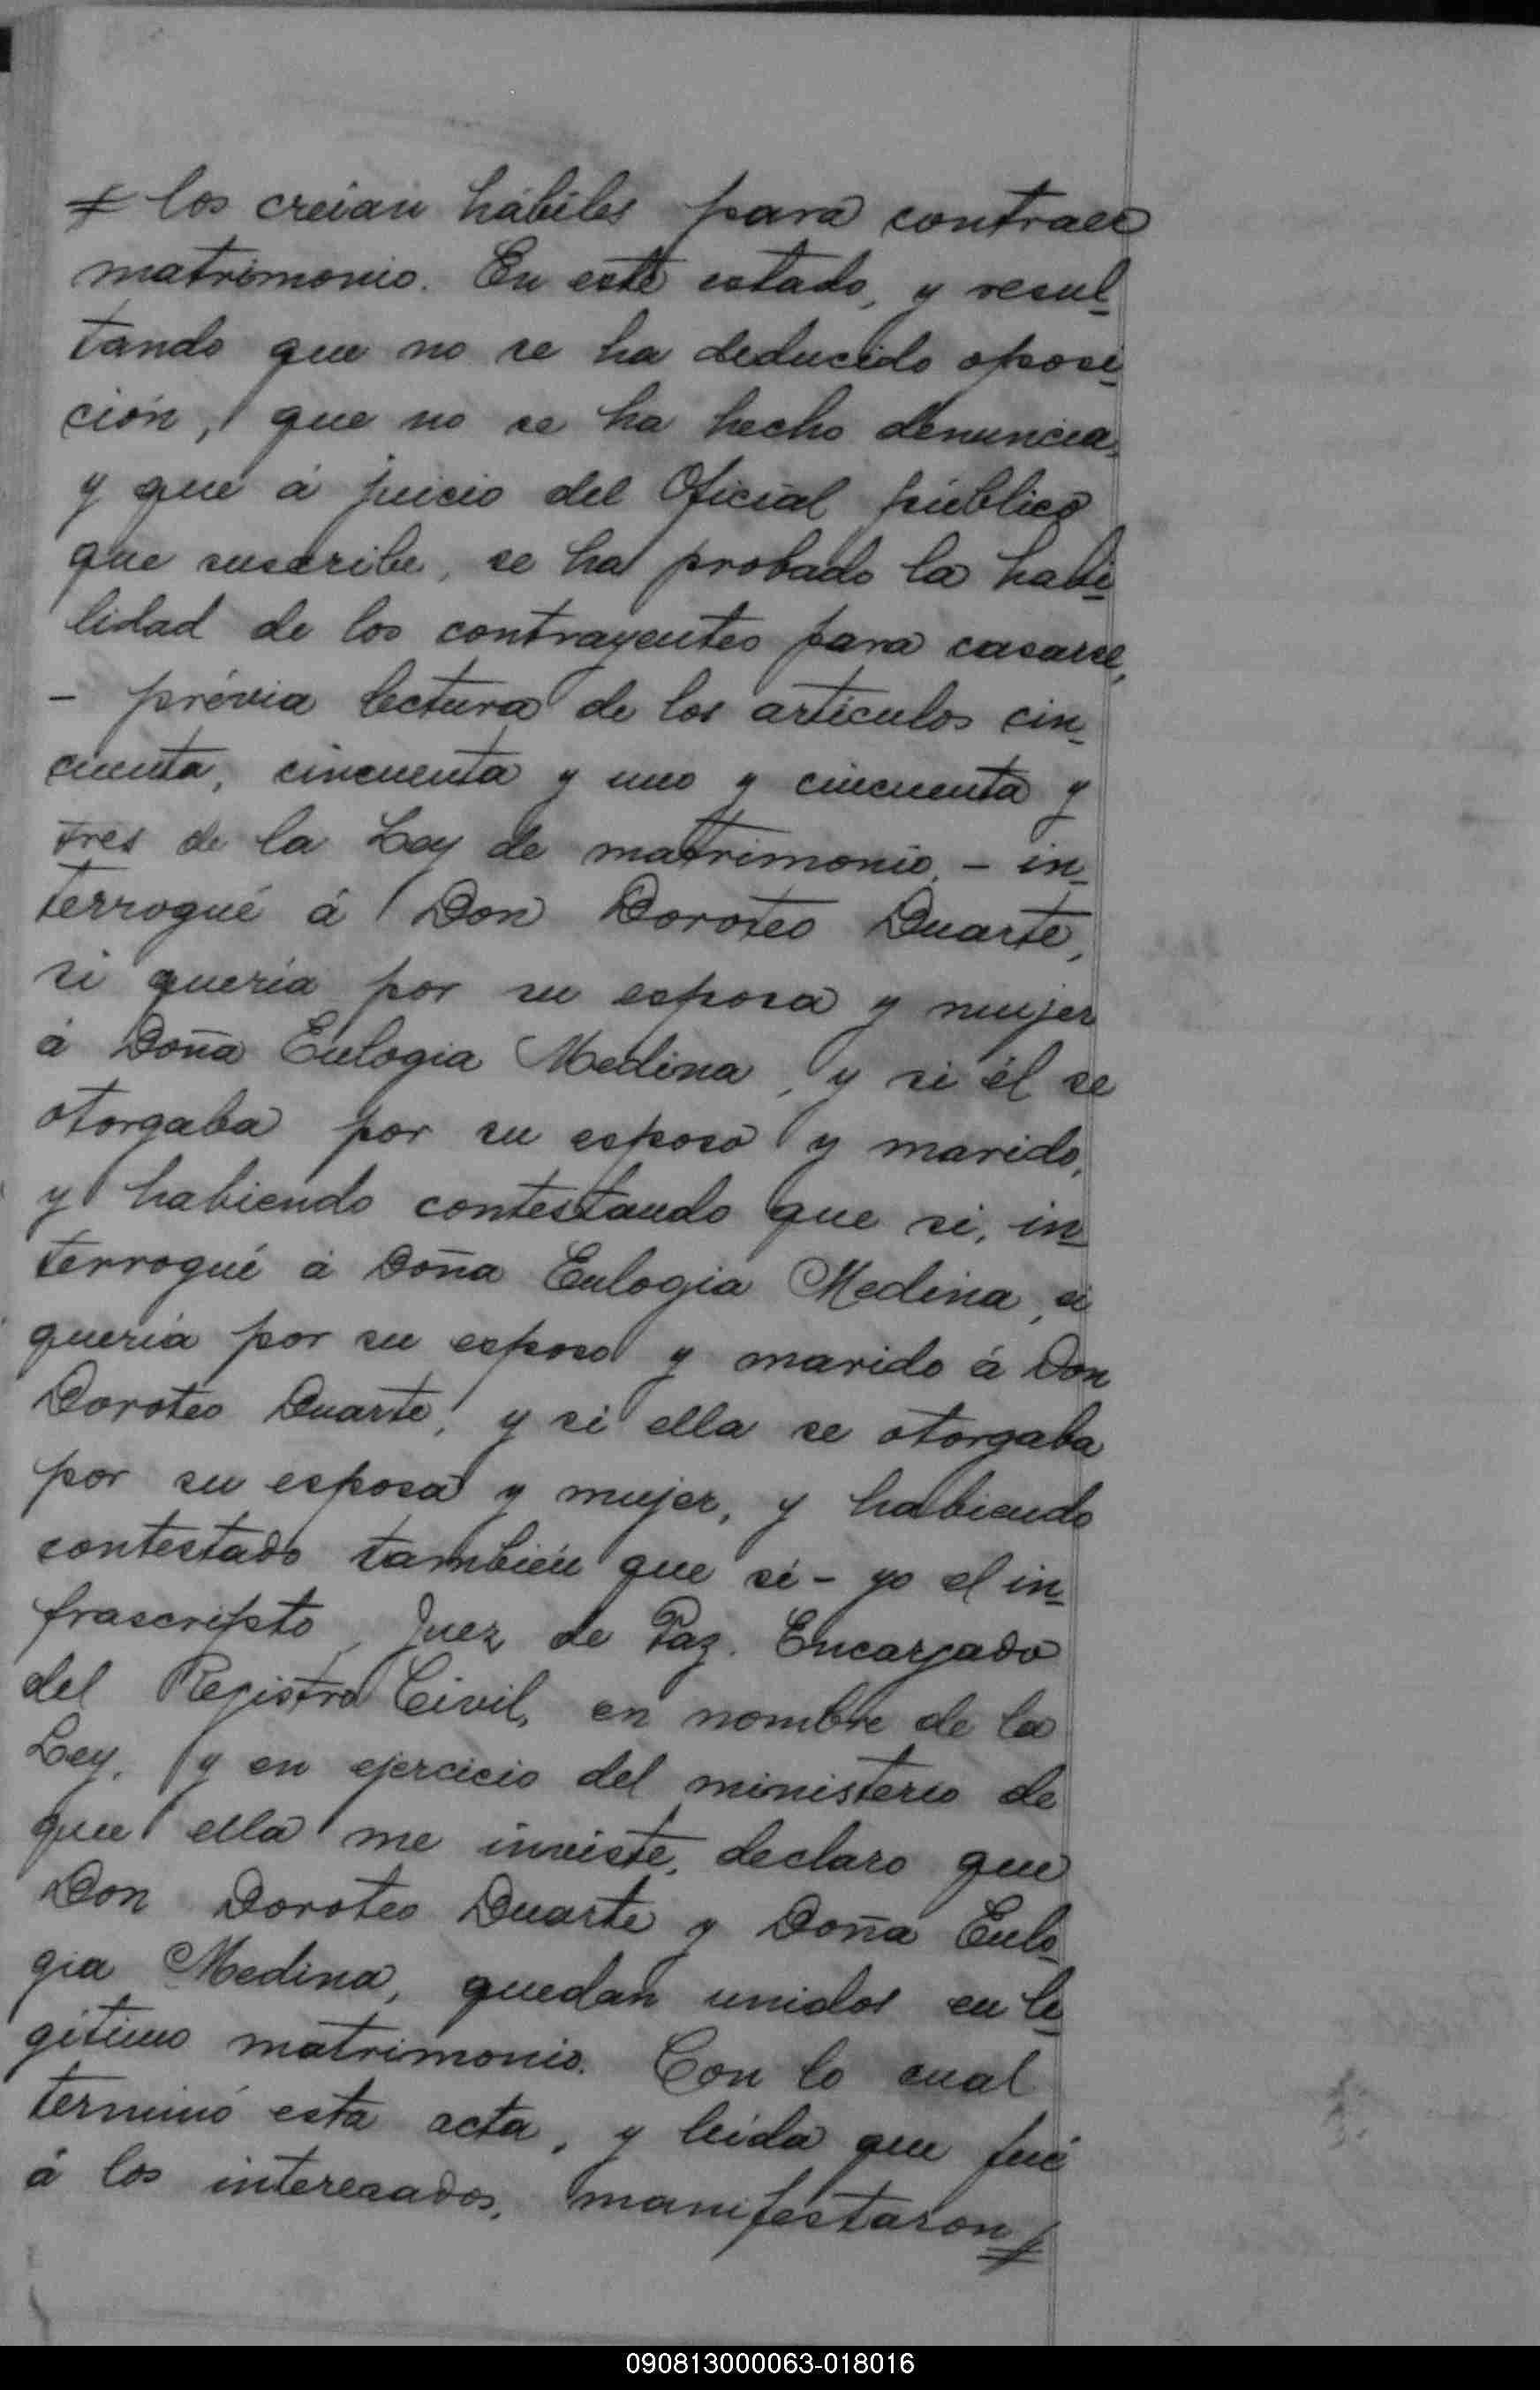 ≠ los creían hábiles para contraer
matrimonio. En este estado, y resul-
tando que no se ha deducido oposi-
ción, que no se ha hecho denuncia,
y que á juicio del Oficial público
que suscribe, se ha probado la habi-
lidad de los contrayentes para casarse,
- prévia lectura de los artículos cin-
cuenta, cincuenta y uno y cincuenta y
tres de la Ley de matrimonio, - in-
terrogué á Don Doroteo Duarte,
si quería por su esposa y mujer
á Doña Eulogia Medina, y si él se
otorgaba por su esposo y marido,
y habiendo contestando que si, in-
terrogué á Doña Eulogia Medina, si
quería por su esposo y marido á Don
Doroteo Duarte, y si ella se otorgaba
por su esposa y mujer, y habiendo
contestado también que sí - yo el in-
frascripto, Juez de Paz. Encargado
del Registro Civil, en nombre de la
Ley, y en ejercicio del ministerio de
que ella me inviste, declaro que
Don Doroteo Duarte y Doña Eulo-
gia Medina, quedan unidos en le-
gítimo matrimonio. Con lo cual
terminó esta acta, y leída que fué
á los interesados, manifestaron ≠
090813000063-018016